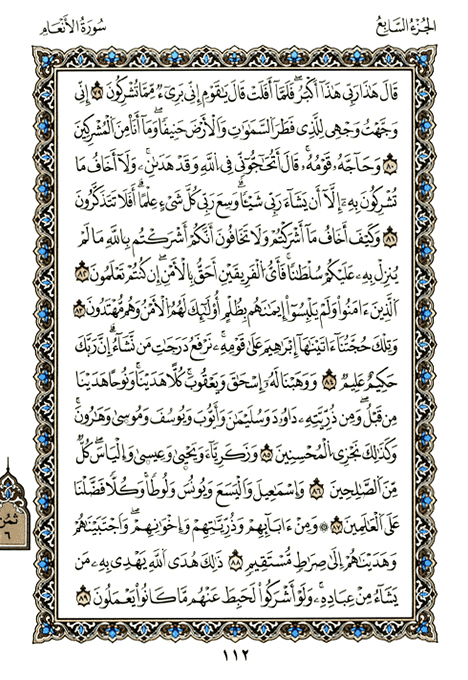 الجزء السابع
سورة الأنعام
قَالَ هَٰذَا رَبِّي هَٰذَا أَكْبَرُ فَلَمَّا أَفَلَتْ قَالَ يَٰقَوْمِ إِنِّي بَرِيٓءٌ مِّمَّا تُشْرِكُونَ ٧٩ إِنِّي
وَجَّهْتُ وَجْهِيَ لِلَّذِي فَطَرَ السَّمَٰوَٰتِ وَالْأَرْضَ حَنِيفًا وَمَآ أَنَا مِنَ الْمُشْرِكِينَ
٨٠ وَحَآجَّهُۥ قَوْمُهُۥ قَالَ أَتُحَٰٓجُّونِي فِي اللَّهِ وَقَدْ هَدَىٰنِ وَلَآ أَخَافُ مَا
تُشْرِكُونَ بِهِۦٓ إِلَّآ أَن يَشَآءَ رَبِّي شَيْـًٔا وَسِعَ رَبِّي كُلَّ شَيْءٍ عِلْمًا أَفَلَا تَتَذَكَّرُونَ
٨١ وَكَيْفَ أَخَافُ مَآ أَشْرَكْتُمْ وَلَا تَخَافُونَ أَنَّكُمْ أَشْرَكْتُم بِاللَّهِ مَا لَمْ
يُنزِلْ بِهِۦ عَلَيْكُمْ سُلْطَٰنًا فَأَيُّ الْفَرِيقَيْنِ أَحَقُّ بِالْأَمْنِ إِن كُنتُمْ تَعْلَمُونَ ٨٢
الَّذِينَ ءَامَنُوا۟ وَلَمْ يَلْبِسُوٓا۟ إِيمَٰنَهُم بِظُلْمٍ أُو۟لَٰٓئِكَ لَهُمُ الْأَمْنُ وَهُم مُّهْتَدُونَ ٨٣
وَتِلْكَ حُجَّتُنَآ ءَاتَيْنَٰهَآ إِبْرَٰهِيمَ عَلَىٰ قَوْمِهِۦ نَرْفَعُ دَرَجَٰتِ مَن نَّشَآءُ إِنَّ رَبَّكَ
حَكِيمٌ عَلِيمٌ ٨٤ وَوَهَبْنَا لَهُۥٓ إِسْحَٰقَ وَيَعْقُوبَ كُلًّا هَدَيْنَا وَنُوحًا هَدَيْنَا
مِن قَبْلُ وَمِن ذُرِّيَّتِهِۦ دَاوُۥدَ وَسُلَيْمَٰنَ وَأَيُّوبَ وَيُوسُفَ وَمُوسَىٰ وَهَٰرُونَ
وَكَذَٰلِكَ نَجْزِي الْمُحْسِنِينَ ٨٥ وَزَكَرِيَّآءَ وَيَحْيَىٰ وَعِيسَىٰ وَإِلْيَاسَ كُلٌّ
مِّنَ الصَّٰلِحِينَ ٨٦ وَإِسْمَٰعِيلَ وَالْيَسَعَ وَيُونُسَ وَلُوطًا وَكُلًّا فَضَّلْنَا
عَلَى الْعَٰلَمِينَ ٨٧ وَمِنْ ءَابَآئِهِمْ وَذُرِّيَّٰتِهِمْ وَإِخْوَٰنِهِمْ وَاجْتَبَيْنَٰهُمْ
وَهَدَيْنَٰهُمْ إِلَىٰ صِرَٰطٍ مُّسْتَقِيمٍ ٨٨ ذَٰلِكَ هُدَى اللَّهِ يَهْدِي بِهِۦ مَن
يَشَآءُ مِنْ عِبَادِهِۦ وَلَوْ أَشْرَكُوا۟ لَحَبِطَ عَنْهُم مَّا كَانُوا۟ يَعْمَلُونَ ٨٩
ثمن
٦
١١٢